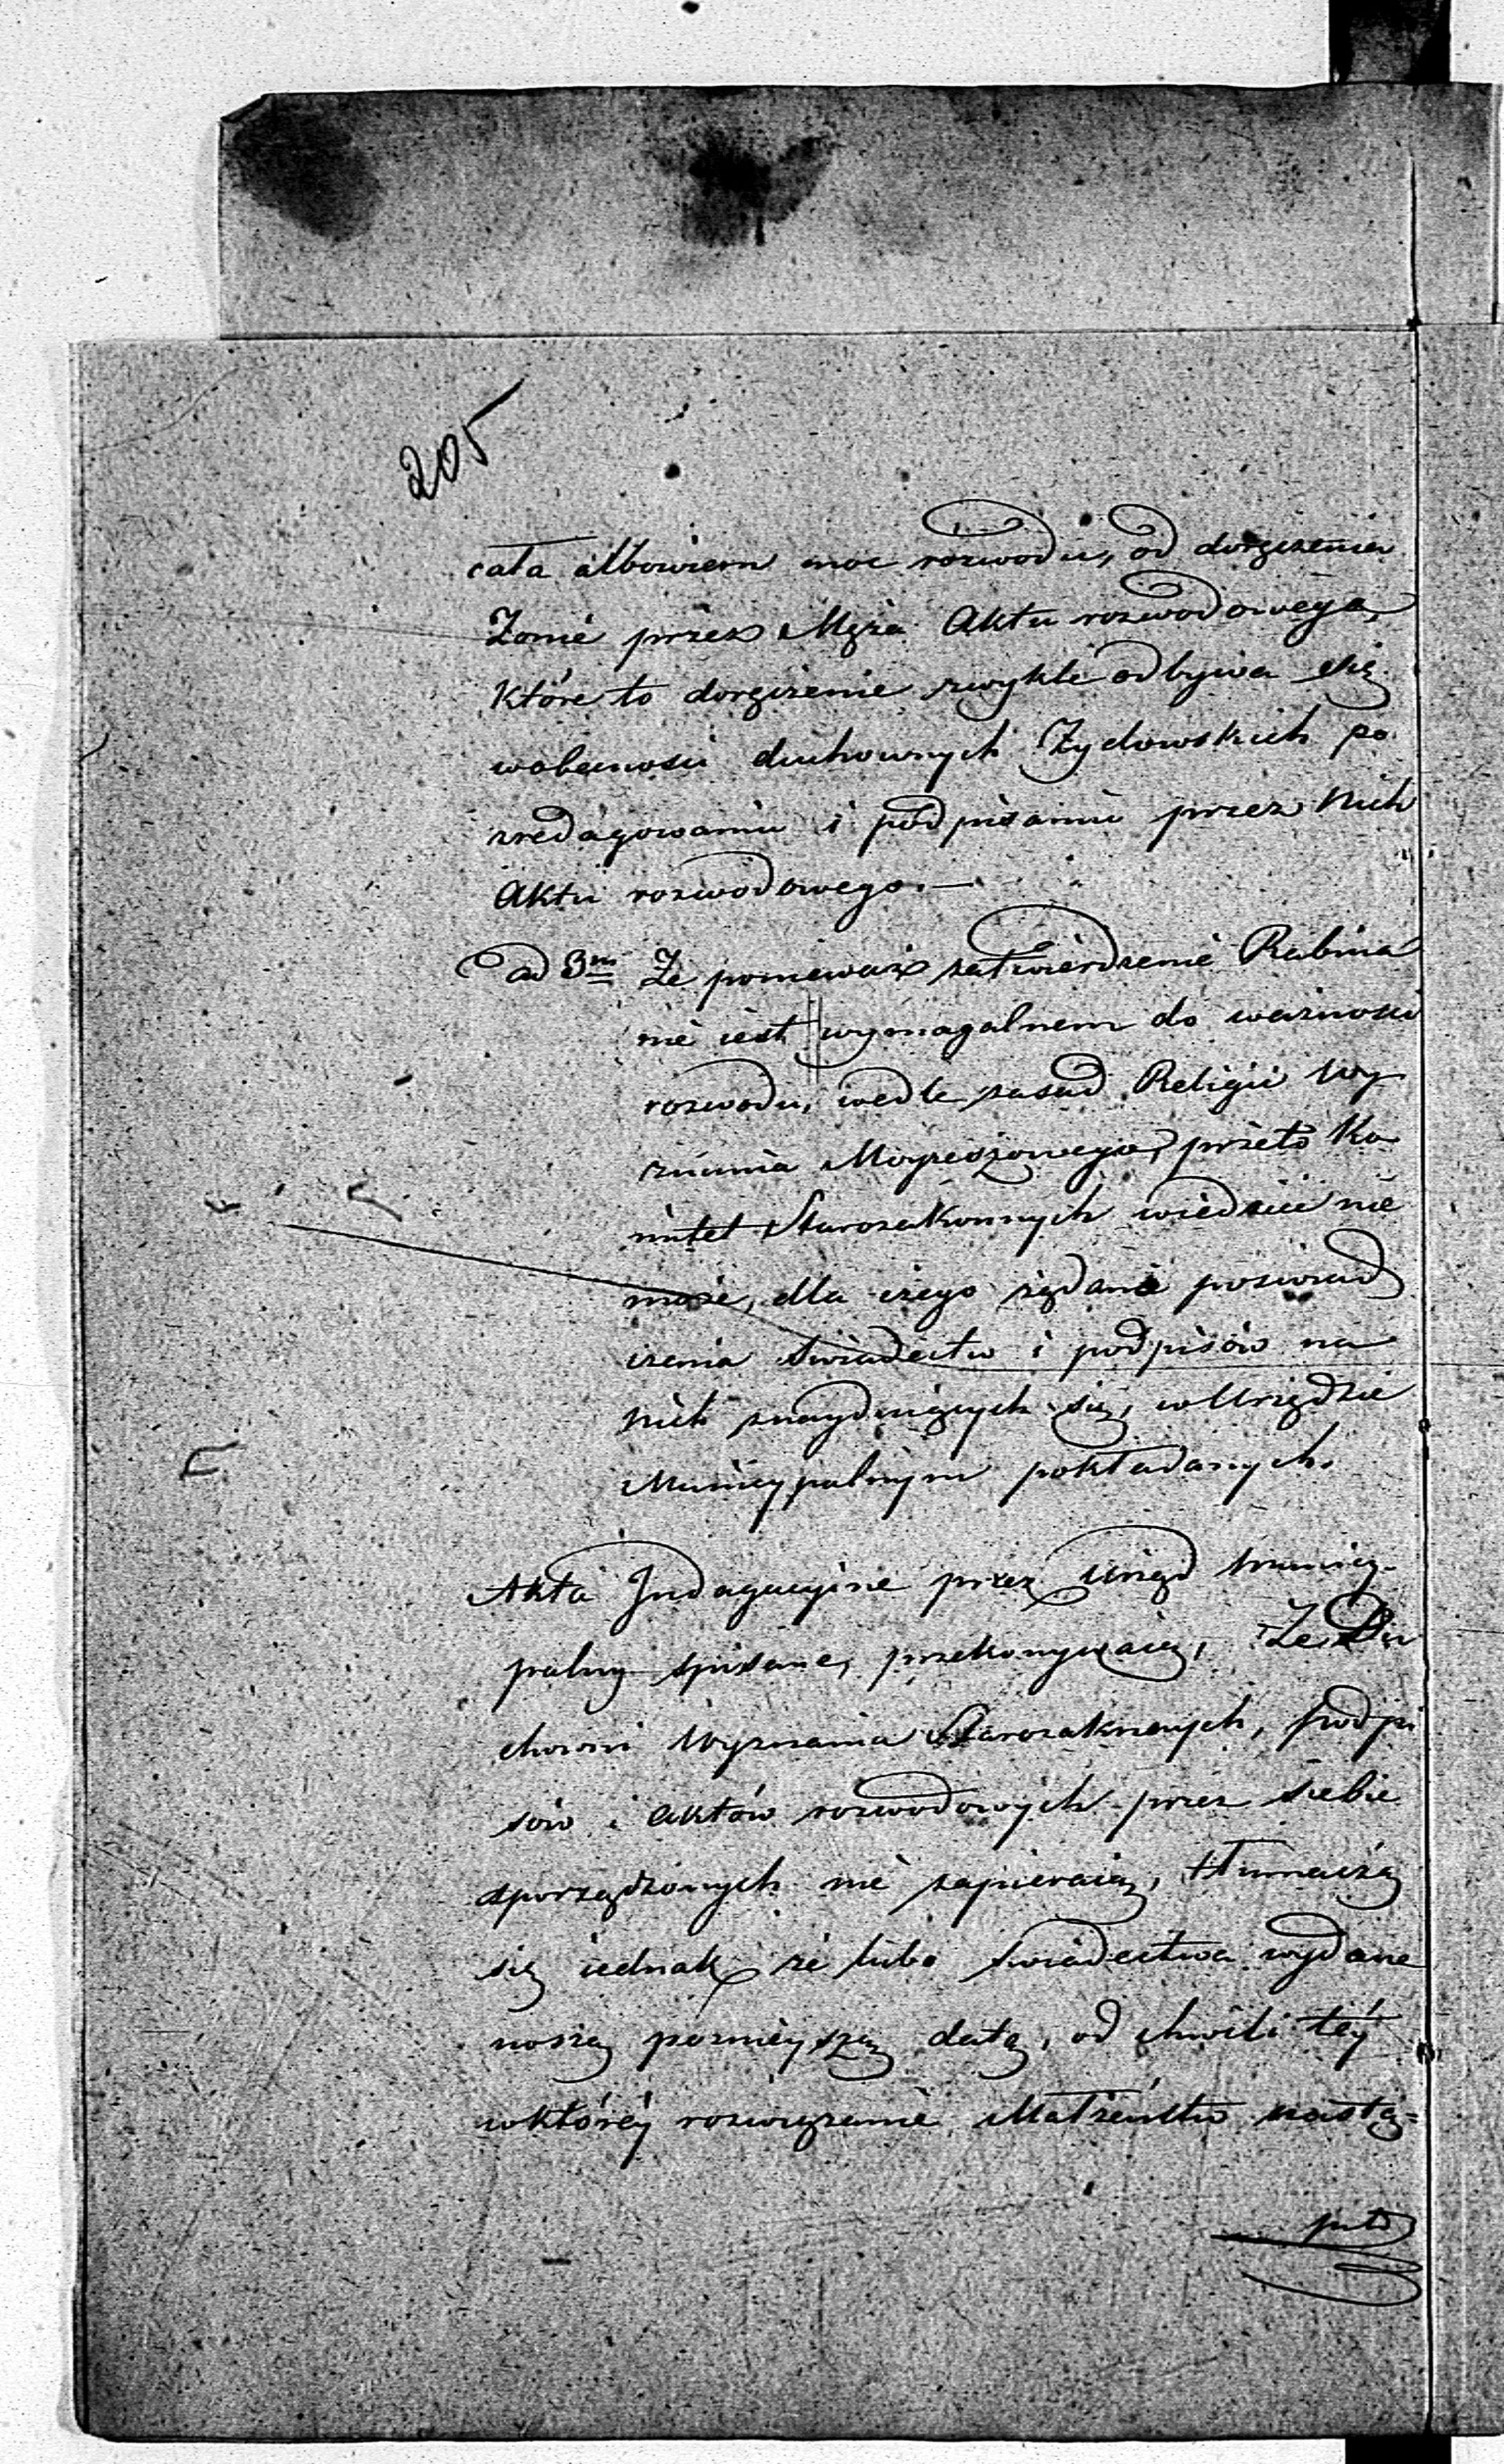 205
cała albowiem moc rozwodu, od doręczenia
Żonie przez Męża Aktu rozwodowego,
które to doręczenie zwykle odbywa się
wobecnosci duchownych Żydowskich po
zredagowaniu i podpisaniu przez Nich
Aktu rozwodowego. —
ad 3m Że ponieważ zatwierdzenie Rabina
nie iest wymagalnem do ważnosci
rozwodu, wedle zasad Religii Wy
znania Moyżeszowego, przeto Ko
mitet Starozakonnych wiedzieć nie
może, dla czego żądano poswiad
czenia swiadectw i podpisów na
nich znayduiących się, w Urzędzie
Municypalnym pokładanych.
Akta Indagacyine przez Urząd Municy-
palny spisane, przekonywaią, Że Du
chowni Wyznania Starozaknnych, podpi
sów i Aktów rozwodowych przez siebie
sporządzonych nie zapieraią, tłumaczą
się iednak, że lubo swiadectwa wydane
noszą poznieyszą datę, od chwili tey
w któréy rozwiązanie Małżeństw nastą=
piło